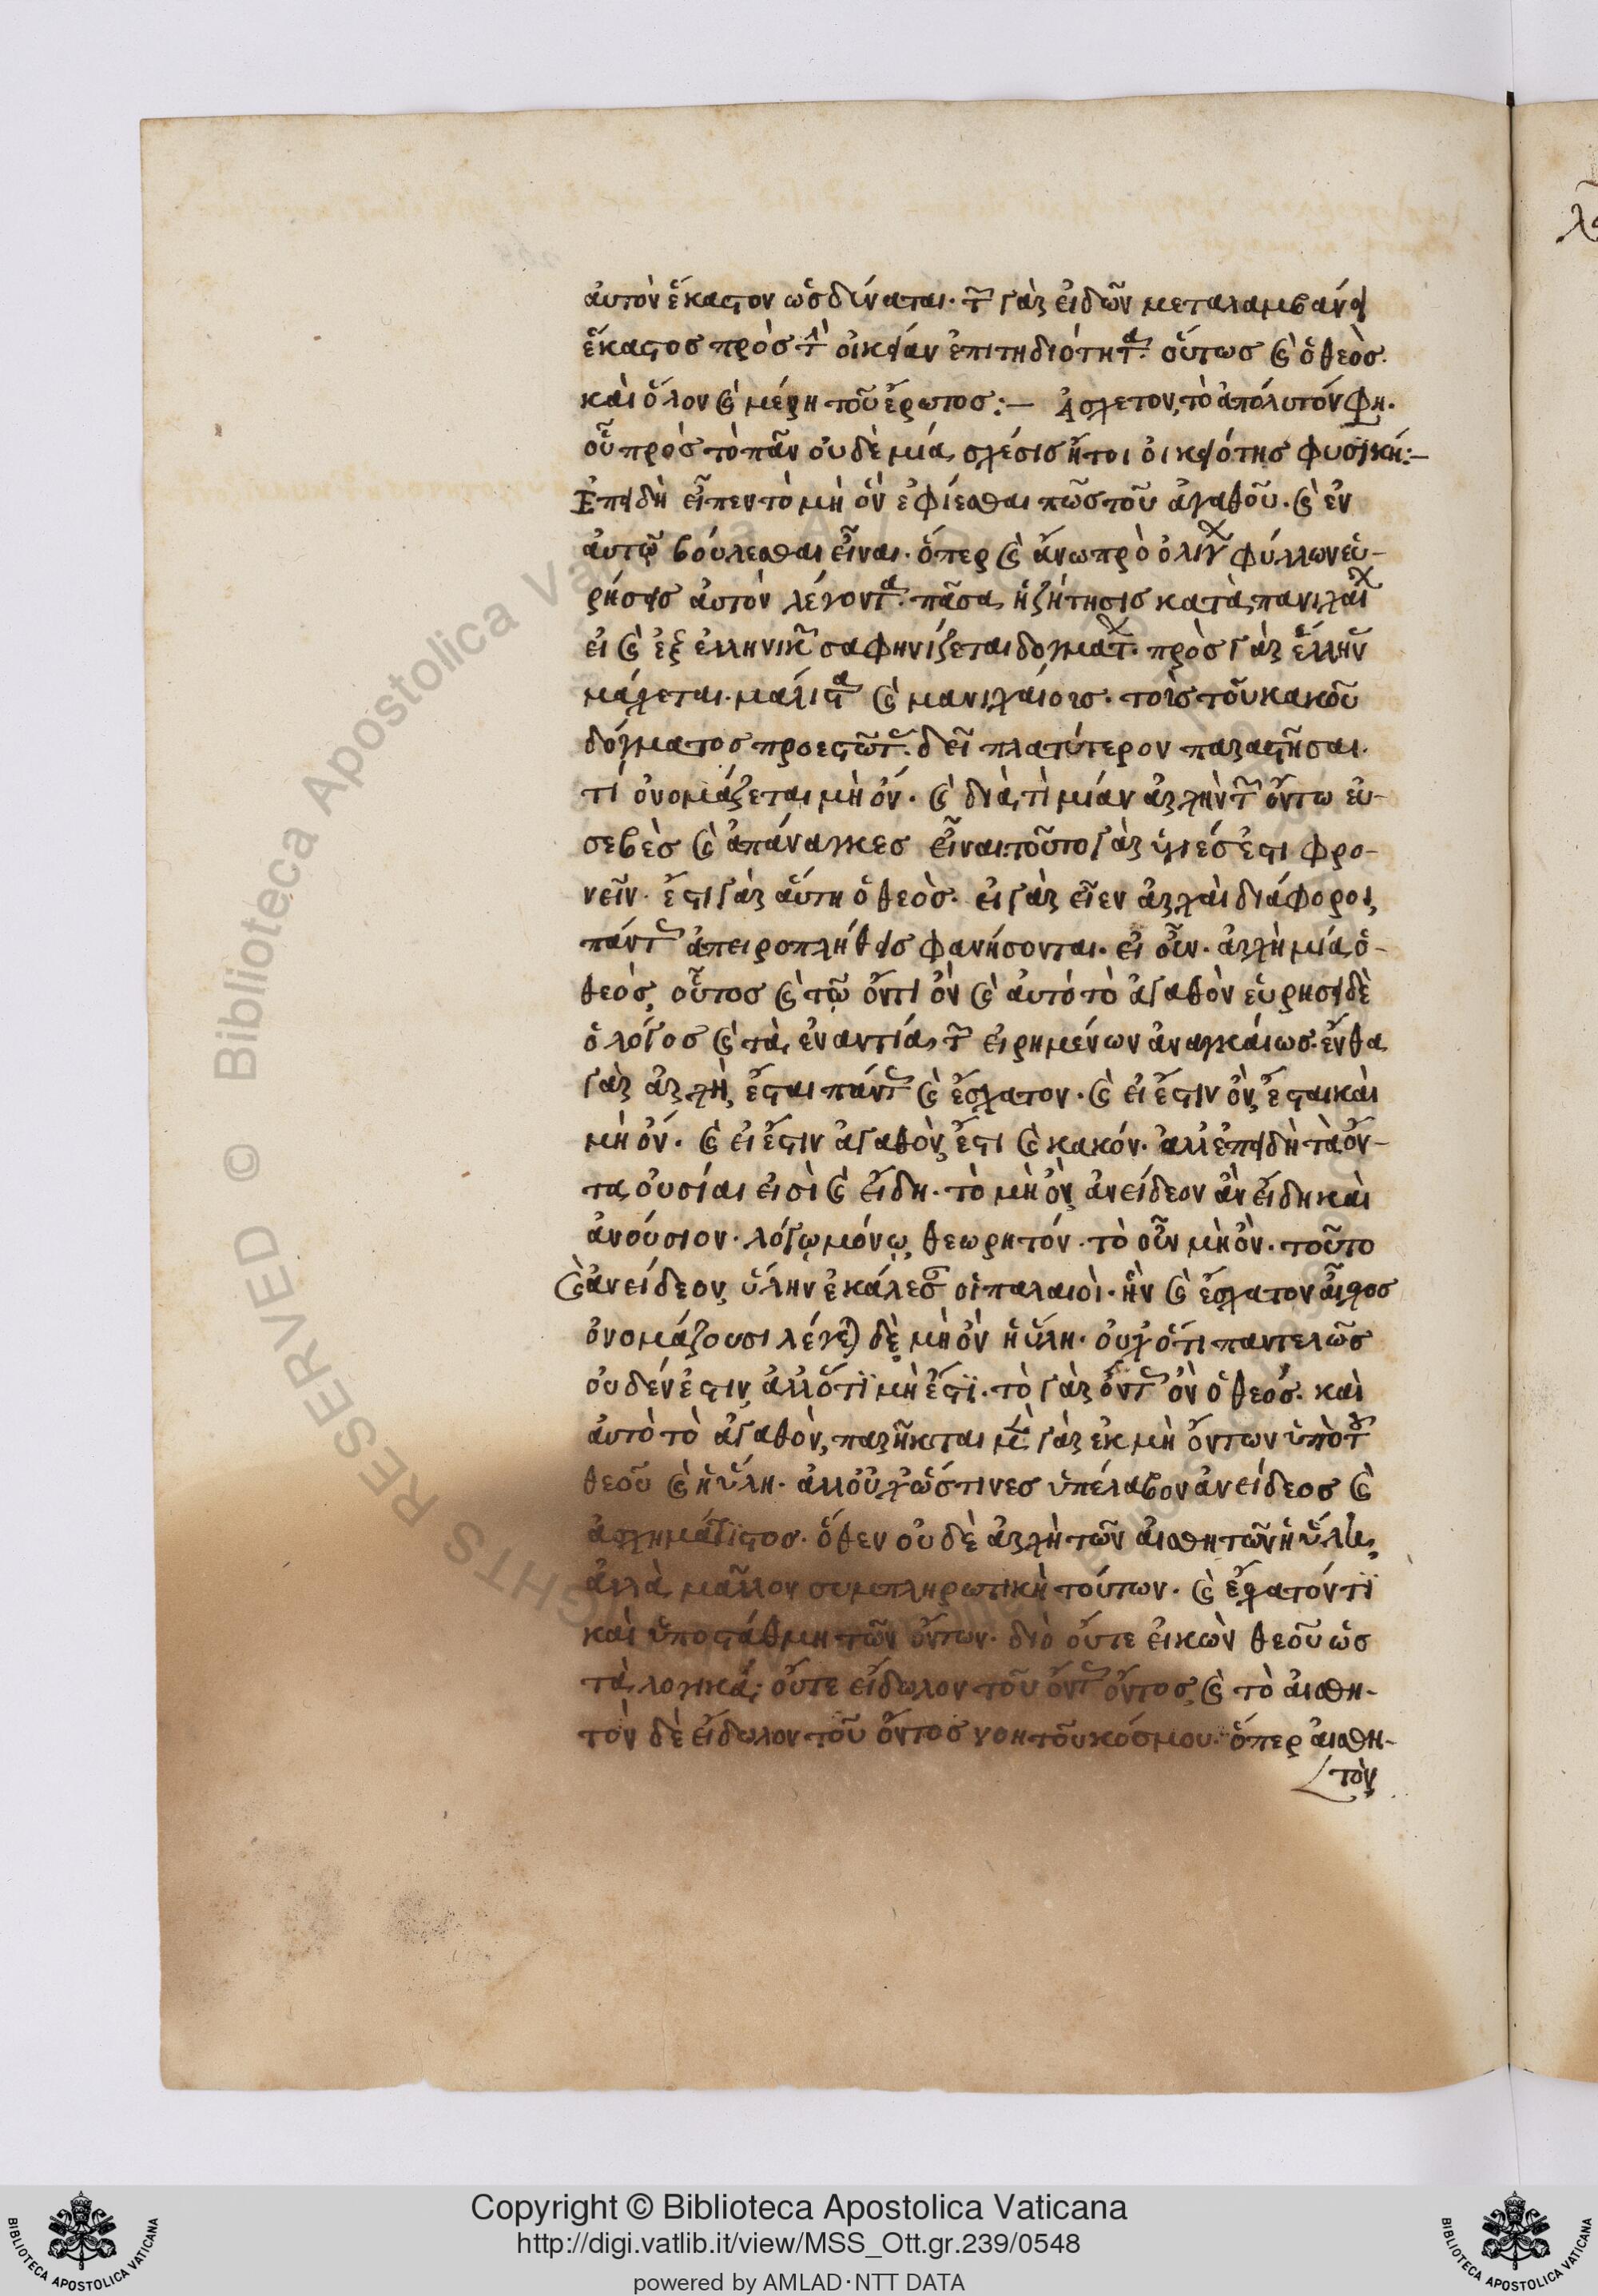 αὐτὸν ἕκαστον ὡς δύναται· τῶν γὰρ εἰδῶν μεταλαμβάνει
ἕκαστος πρὸς τὴν οἰκείαν ἐπιτηδιότητα. οὕτως καὶ ὁ θεὸς.
καὶ ὅλον καὶ μέρη τοῦ ἔρωτος:— Ἄσχετον, τὸ ἀπόλυτόν φη.
οὗ πρὸς τὸ πᾶν οὐδὲ μία σχέσις ἤτοι οἰκειότης φυσική:—
Ἐπειδὴ εἶπεν τὸ μὴ ὂν ἐφίεσθαι πῶς τοῦ ἀγαθοῦ. καὶ ἐν
αὐτῷ βούλεσθαι εἶναι. ὅπερ καὶ ἄνω πρὸ ὀλίγων φύλλων εὑ-
ρήσεις αὐτὸν λέγοντα. πᾶσα ἡ ζήτησις κατὰ μανιχαίων
εἰ καὶ ἐξ ἑλληνικῶν σαφηνίζεται δογμάτων. πρὸς γὰρ ἕλληνας
μάχεται. μάλιστα καὶ μανιχαίοις. τοῖς τοῦ κακοῦ
δόγματος προεστῶτας. δεῖ πλατύτερον παραστῆσαι.
τί ὀνομάζεται μὴ ὄν. καὶ διὰ τὶ μίαν ἀρχὴν τῶν ὄντω εὐ-
σεβὲς καὶ ἀπάναγκες εἶναι· τοῦτο γὰρ ὑγιές ἐστι φρο-
νεῖν. ἔστι γὰρ αὕτη ὁ θεὸς. εἰ γὰρ εἶεν ἀρχαὶ διάφοροι,
πάντως ἀπειροπλήθεις φανήσονται. εἰ οὖν. ἀρχὴ μία ὁ-
θεός, οὗτος καὶ τῷ ὄντι ὂν καὶ αὐτό τὸ ἀγαθὸν εὑρήσει δὲ
ὁ λόγος καὶ τὰ ἐναντία τῶν εἰρημένων ἀναγκαίως. ἔνθα
γὰρ ἀρχὴ, ἔσται πάντως καὶ ἔσχατον. καὶ εἰ ἔστιν ὂν, ἔσται καὶ
μὴ ὄν. καὶ εἰ ἔστιν ἀγαθὸν, ἔστι καὶ κακόν. ἀλλ' ἐπειδὴ τὰ ὄν-
τα οὐσίαι εἰσὶ καὶ εἴδη. τὸ μὴ ὂν, ἀνείδεον ἂν εἴδη καὶ
ἀνούσιον. λόγῳ μόνῳ θεωρητόν. τὸ οὖν μὴ ὂν. τοῦτο
καὶ ἀνείδεον, ὕλην ἐκάλεσαν οἱ παλαιοὶ. ἣν καὶ ἔσχατον αἶσχος
ὀνομάζουσι λέγεται δὲ μὴ ὂν ἡ ὕλη. οὐχ ὅτι παντελῶς
οὐδέν ἐστιν, ἀλλ' ὅτι μὴ ἔστι. τὸ γὰρ ὄντως ὂν ὁ θεός. καὶ
αὐτὸ τὸ ἀγαθὸν, παρῆκται μὲν γὰρ ἐκ μὴ ὄντων ὑπὸ τοῦ
θεοῦ καὶ ἡ ὕλη. ἀλλ' οὐχ ὥς τινες ὑπέλαβον ἀνείδεος καὶ
ἀσχημάτιστος. ὅθεν οὐδὲ ἀρχὴ τῶν αἰσθητῶν ἡ ὕλη,
ἀλλὰ μᾶλλον συμπληρωτικὴ τούτων. καὶ ἔσχατόν τι
καὶ ὑποστάθμη τῶν ὄντων. διὸ οὔτε εἰκὼν θεοῦ ὡς
τὰ λογικά; οὔτε εἴδωλον τοῦ ὄντως ὄντος, καὶ τὸ αἰσθη-
τὸν δὲ εἴδωλον τοῦ ὄντος νοητοῦ κόσμου. ὅπερ αἰσθη-
τὸν
Copyright © Biblioteca Apostolica Vaticana
http://digi.vatlib.it/view/MSS_Ott.gr.239/0548
powered by AMLAD·NTT DATA